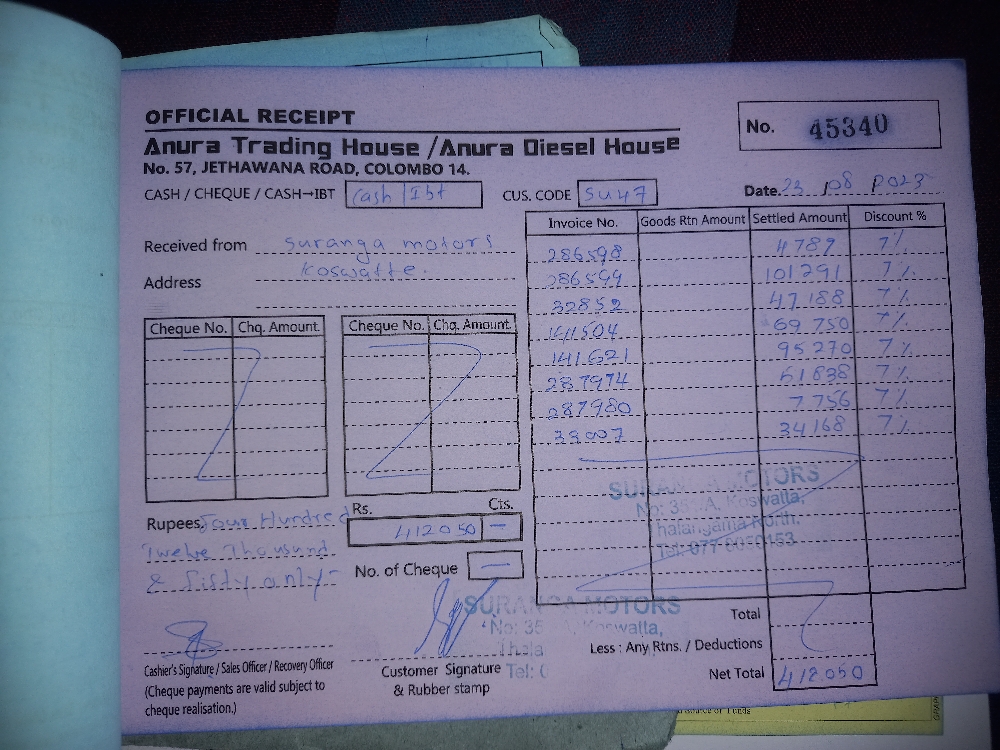 OFFICIAL RECEIPT
No. 45340
Anura Trading House / Anura Diesel House
No. 57, JETHAWANA ROAD, COLOMBO 14.
CASH / CHEQUE / CASH→IBT Cash / Ibt CUS. CODE SU47 Date. 23 / 08 2023
Received from Suranga motors
Address Koswatte.
Invoice No. Goods Rtn Amount Settled Amount Discount %
286598 4789 7%
286599 101291 7%
32852 47188 7%
141504 69750 7%
141621 95270 7%
287974 51838 7%
287980 7756 7%
39007 34168 7%
Cheque No. Chq. Amount Cheque No. Chq. Amount
SURANGA MOTORS
Koswatta,
Thalangama North.
Rs. Cts.
Rupees Four Hundred 412050 —
Twelve Thousand
& fifty only- No. of Cheque —
SURANGA MOTORS
No: 35 Koswatta,
Thala
Tel: (
Total
Less : Any Rtns. / Deductions
Net Total 412050
Cashier's Signature / Sales Officer / Recovery Officer
(Cheque payments are valid subject to
cheque realisation.)
Customer Signature
& Rubber stamp